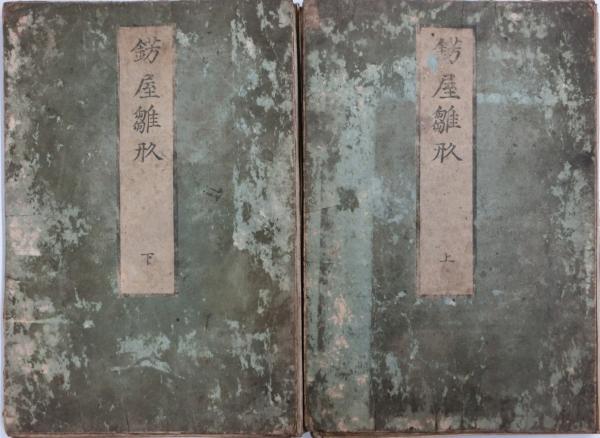 錺屋雛形
上
錺屋雛形
下